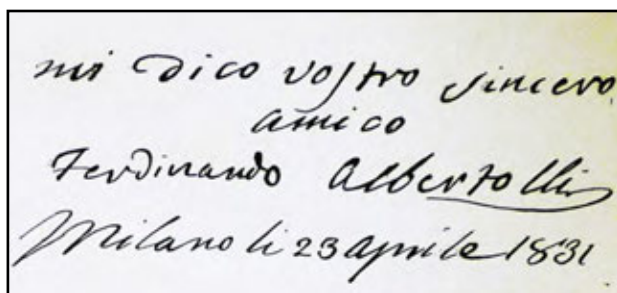 mi dico vostro sincero
amico
Ferdinando Albertolli
Milano li 23 aprile 1831